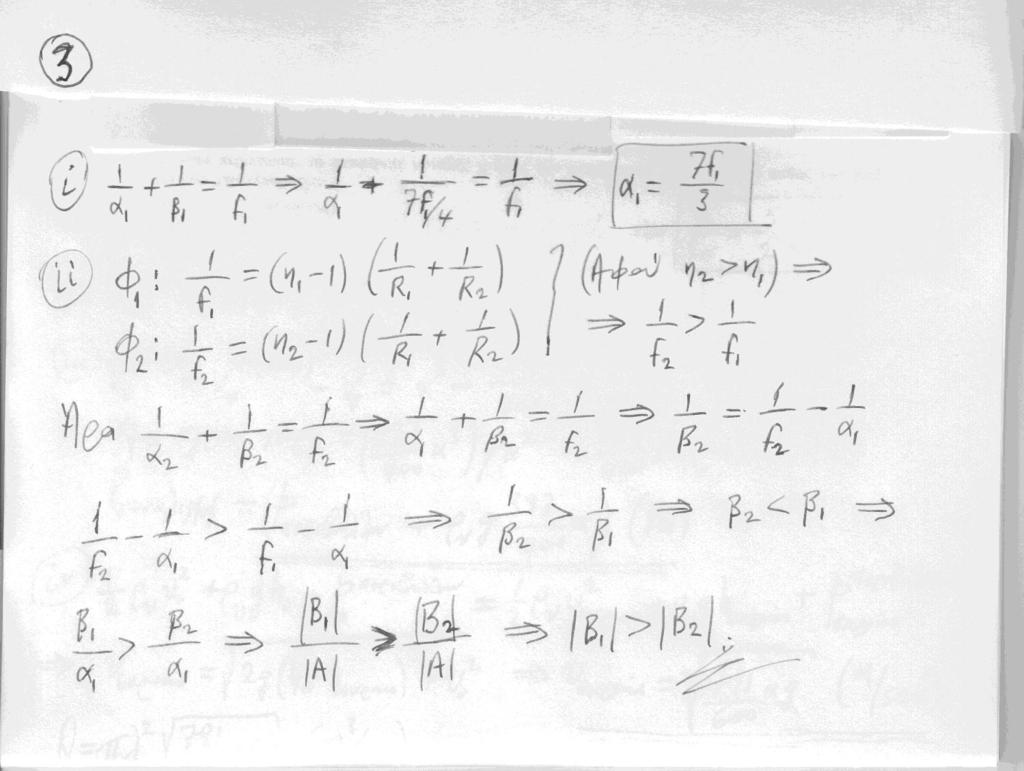 3
i 1/α₁ + 1/β₁ = 1/f₁ ⇒ 1/α₁ + 1/(7f₁/4) = 1/f₁ ⇒ α₁ = 7f₁/3
ii Φ₁: 1/f₁ = (η₁-1) (1/R₁ + 1/R₂) } (Αφού η₂ > η₁) ⇒
Φ₂: 1/f₂ = (η₂-1) (1/R₁ + 1/R₂) ⇒ 1/f₂ > 1/f₁
Άρα 1/α₂ + 1/β₂ = 1/f₂ ⇒ 1/α₁ + 1/β₂ = 1/f₂ ⇒ 1/β₂ = 1/f₂ - 1/α₁
1/f₂ - 1/α₁ > 1/f₁ - 1/α₁ ⇒ 1/β₂ > 1/β₁ ⇒ β₂ < β₁ ⇒
β₁/α₁ > β₂/α₁ ⇒ |B₁|/|A| > |B₂|/|A| ⇒ |B₁| > |B₂|.